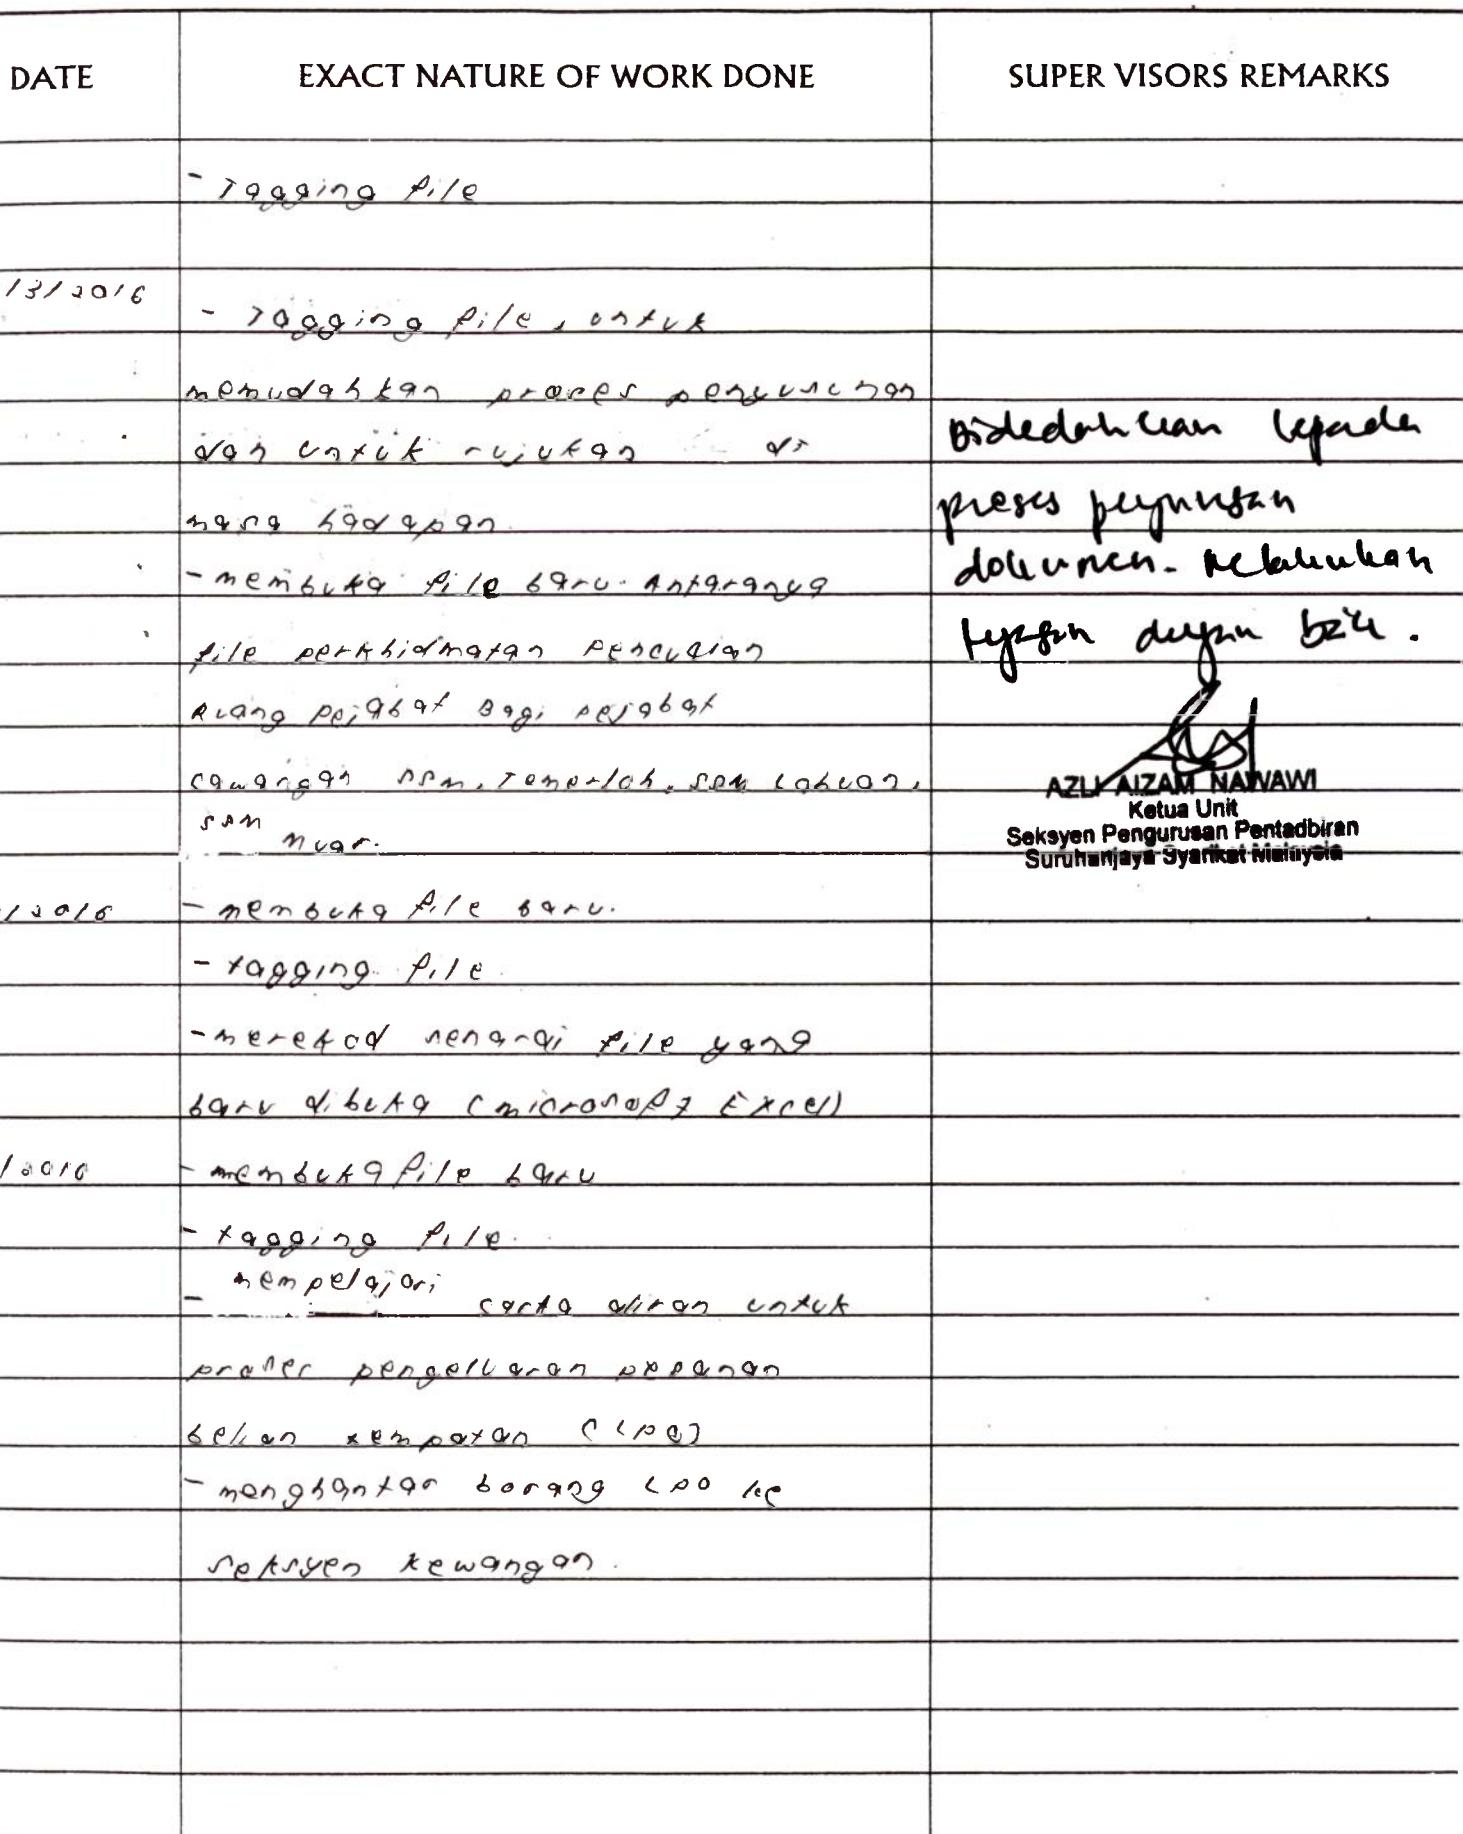 DATE EXACT NATURE OF WORK DONE SUPER VISORS REMARKS
- Tagging file
/3/2016
- Tagging file, untuk
memudahkan proses penyusunan
dan untuk rujukan di
masa hadapan
- membuka file baru. Antaranya
file perkhidmatan Pencucian
Ruang pejabat Bagi pejabat
cawangan SSM, Temerloh, SSM Labuan,
SSM
Muar.
Didedahkan kepada
proses penyusunan
dokumen. Melakukan
tugasan dengan baik.
AZLI AIZAM NAWAWI
Ketua Unit
Seksyen Pengurusan Pentadbiran
Suruhanjaya Syarikat Malaysia
/2016 - membuka file baru.
- tagging file
- merekod senarai file yang
baru dibuka (microsoft Excel)
/2016 - membuka file baru
- tagging file.
- mempelajari carta aliran untuk
proses pengeluaran pesanan
belian tempatan (LPO)
- menghantar borang LPO ke
seksyen kewangan.